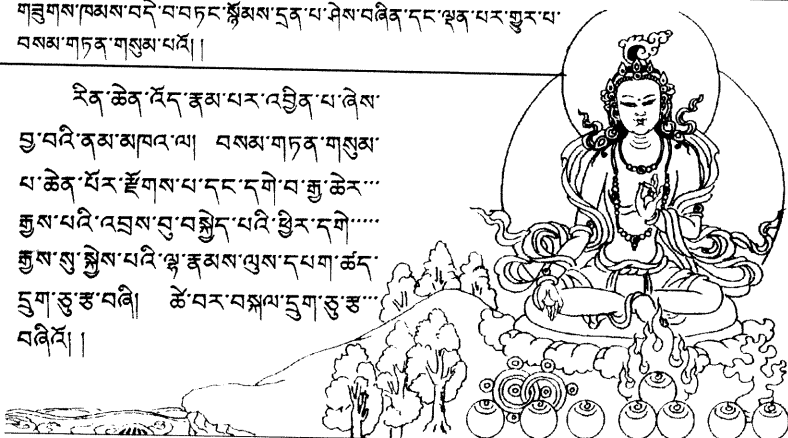 གཟུགས་ཁམས་བདེ་བ་བཏང་སྙོམས་དྲན་པ་ཤེས་བཞིན་དང་ལྡན་པར་གྱུར་པ་
བསམ་གཏན་གསུམ་པའོ། །
རིན་ཆེན་འོད་རྣམ་པར་འབྱིན་པ་ཞེས་
བྱ་བའི་ནམ་མཁའ་ལ། བསམ་གཏན་གསུམ་
པ་ཆེན་པོར་རྫོགས་པ་དང་དགེ་བ་རྒྱ་ཆེར་་་
རྒྱས་པའི་འབྲས་བུ་བསྐྱེད་པའི་ཕྱིར་དགེ་་་་་
རྒྱས་སུ་སྐྱེས་པའི་ལྷ་རྣམས་ལུས་དཔག་ཚད་
དྲུག་ཅུ་རྩ་བཞི། ཚེ་བར་བསྐལ་དྲུག་ཅུ་རྩ་་་
བཞིའོ། །